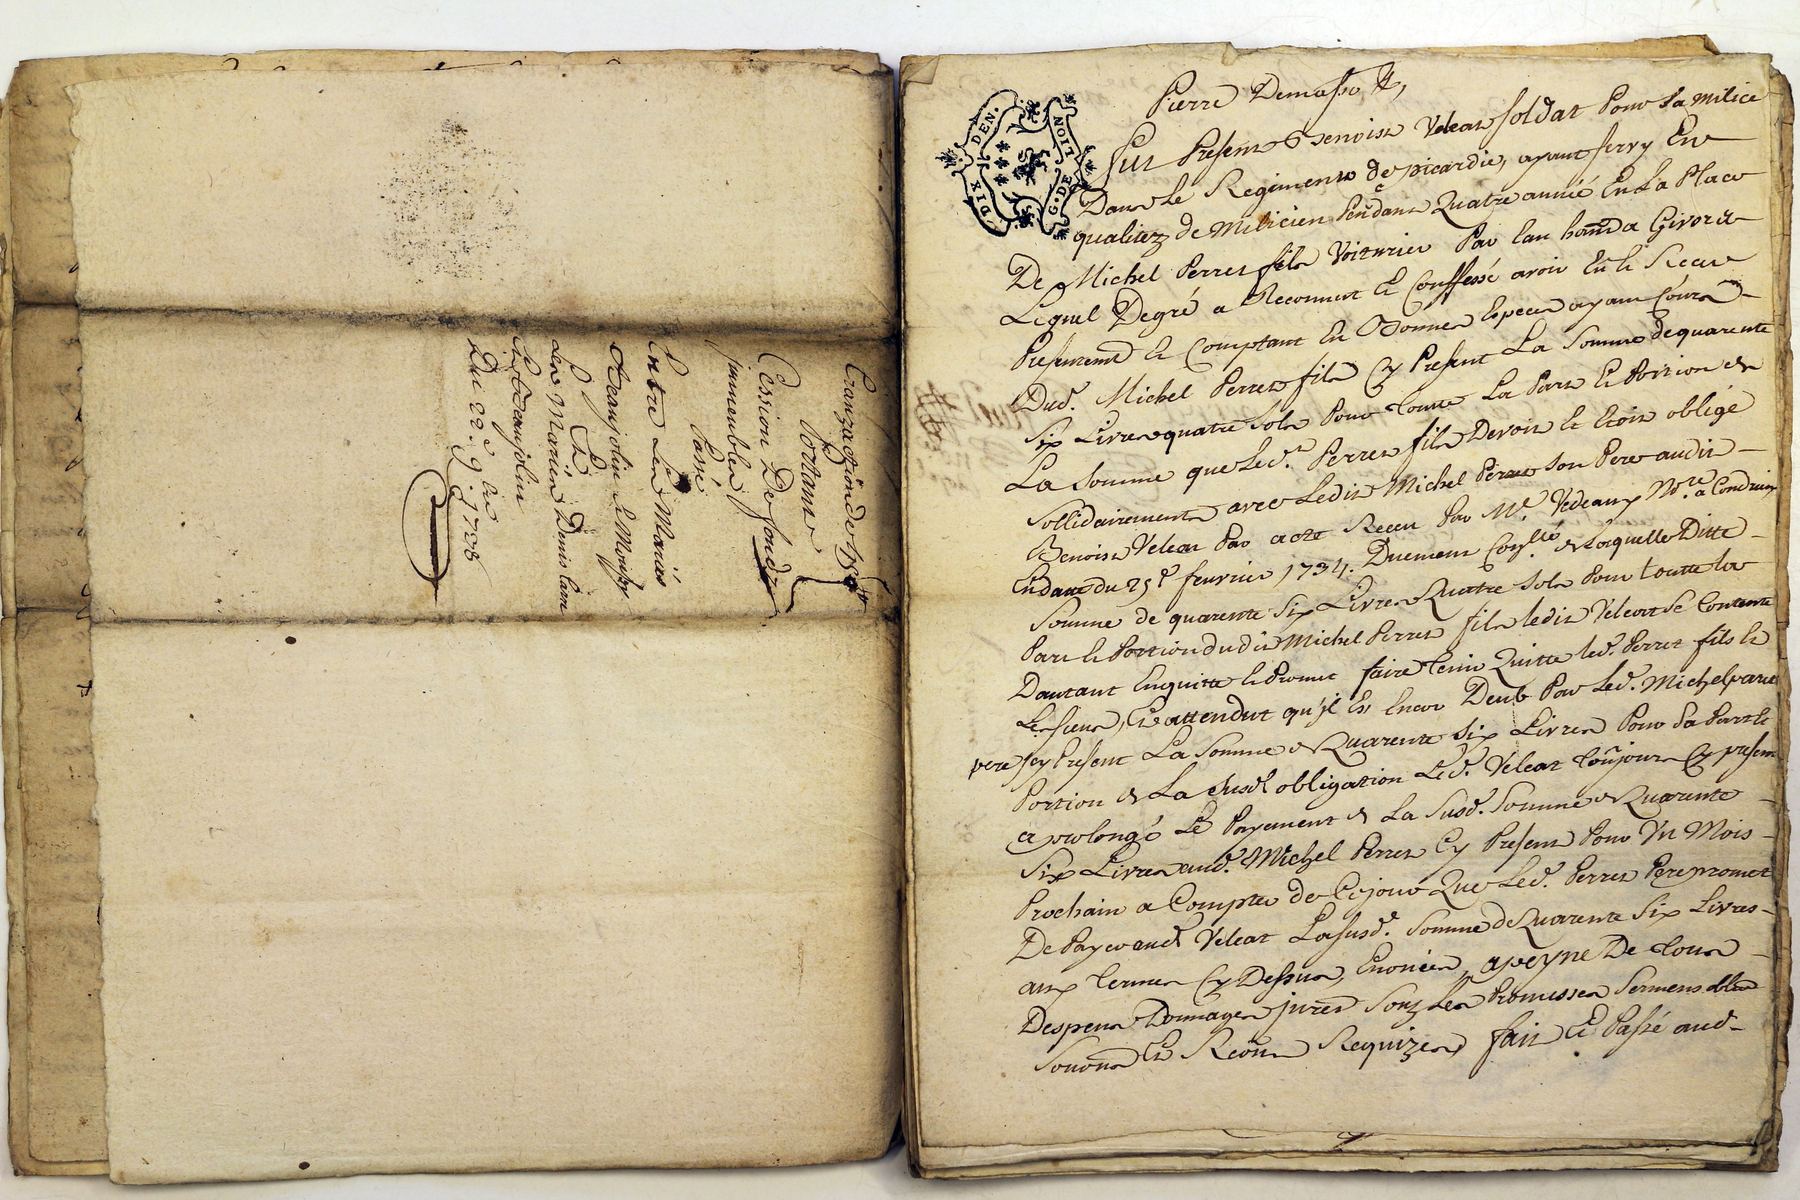 Tranzaction de 150tt
Portant
Cession De fondz
jmmeubles
Passé
Entre Les Mariés
Beaujolin & Monisson
& 
Les Mariés Denis Cam
Et Beaujolin
Du 22e 9bre 1738
DIX DEN.
G. DE LION
Pierre Demasso
fut Present Benoist Veleat soldat Pour la milice
Dans le Regiment de picardie, ayant servy En
qualitez de Milicien Pendant Quatre année En La Place
De Michel Perret fils Voiturier Par Eau a Givors
Lequel Degré a Reconnut Et Confessé avoir Eu & Receu
Presentement Et Comptant En Bonnes Especes ayant Cours
Dud. Michel Perret fils Cy Present La Somme de quarente
Six Livres quatre Sols Pour toute La Part Et Portion de
La Somme que Led. Perret fils Devoit Et Etoit obligé
Sollidairement avec Ledit Michel Perret Son Pere audit
Benoist Veleat Par acte Receu Par Me Vedeaux Nore a Condrieu
En datte du 25e fevrier 1734. Duement de Laquelle Ditte
Somme de quarente Six Livres Quatre Sols Pour toutte la
Part Et Portion dudit Michel Perret fils ledit Veleat Se Contente
Dautant Enquitte Et Promet faire tenir Quitte led. Perret fils Et
Les siens, Et attendut qu'jl Est Encor Deub Par Led. Michel
pere Cy Present La Somme de Quarente Six Livres Pour Sa Part Et
Portion de La Susd. obligation Led. Veleat toujours Cy present
a prolongé Le Payement de La Susd. Somme de Quarente
Six Livres aud. Michel Perret Cy Present Pour Un Mois
Prochain a Compter de Ce jour Que Led. Perret Pere promet
De Payer aud. Veleat La Susd. Somme de Quarente Six Livres
aux termes Cy Dessus Enoncés, apeyne De tous
Despens Dommages Soux Les Promesses Serments
Requizes, fait Et Passé aud.